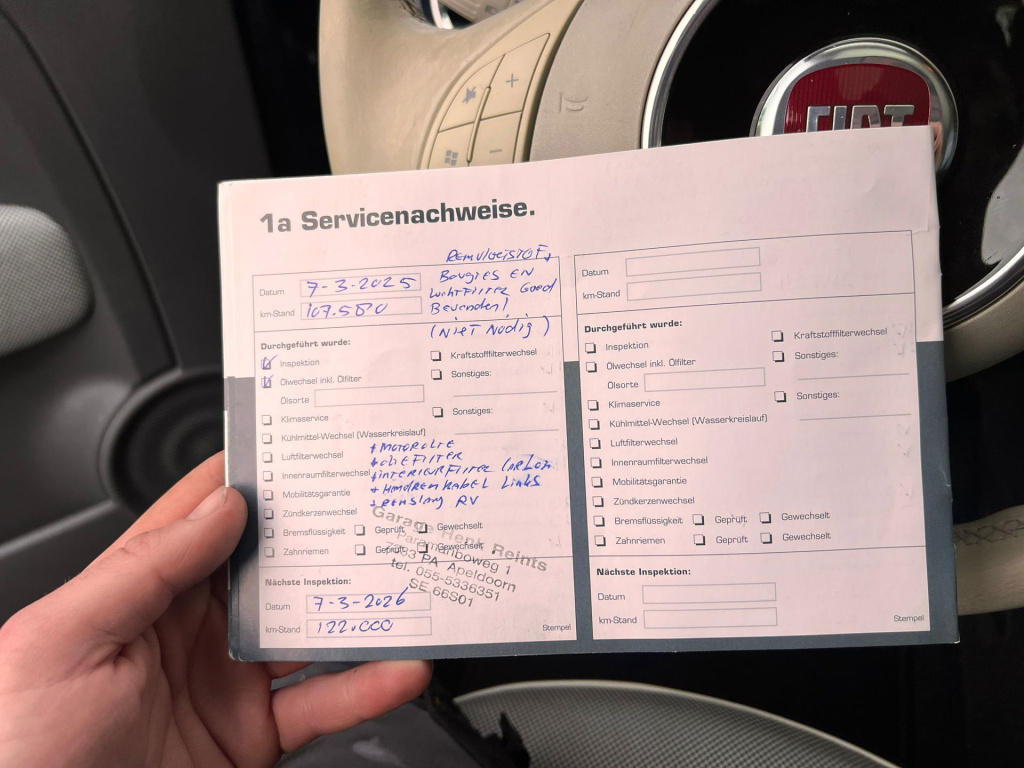 FIAT
1a Servicenachweise.
REMVLOEISTOF,
BOUGIES EN
LUCHTFILTER GOED
BEVONDEN!
(NIET NODIG)
Datum 7-3-2025
km-Stand 107.580
Durchgeführt wurde:
Inspektion
Ölwechsel inkl. Ölfilter
Ölsorte
Klimaservice
Kühlmittel-Wechsel (Wasserkreislauf)
Luftfilterwechsel
Innenraumfilterwechsel
Mobilitätsgarantie
Zündkerzenwechsel
Bremsflüssigkeit Geprüft Gewechselt
Zahnriemen Geprüft Gewechselt
Kraftstofffilterwechsel
Sonstiges:
Sonstiges:
+ MOTOROLIE
+ OLIEFILTER
+ INTERIEURFILTER CARBON
+ HANDREMKABEL LINKS
+ REMSLANG RV
Garage Henk Reints
Paramariboweg 1
7333 PA Apeldoorn
tel. 055-5336351
SE 66S01
Nächste Inspektion:
Datum 7-3-2026
km-Stand 122.000
Stempel
Datum
km-Stand
Durchgeführt wurde:
Inspektion
Ölwechsel inkl. Ölfilter
Ölsorte
Klimaservice
Kühlmittel-Wechsel (Wasserkreislauf)
Luftfilterwechsel
Innenraumfilterwechsel
Mobilitätsgarantie
Zündkerzenwechsel
Bremsflüssigkeit Geprüft Gewechselt
Zahnriemen Geprüft Gewechselt
Kraftstofffilterwechsel
Sonstiges:
Sonstiges:
Nächste Inspektion:
Datum
km-Stand
Stempel